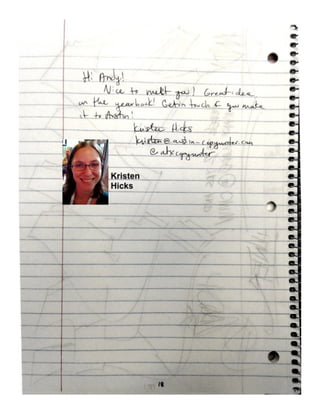 Hi Andy!
Nice to meet you! Great idea
on the yearbook! Get in touch if you make
it to Austin!
Kristen Hicks
kristen@austin-copywriter.com
@atxcopywriter
Kristen
Hicks
18